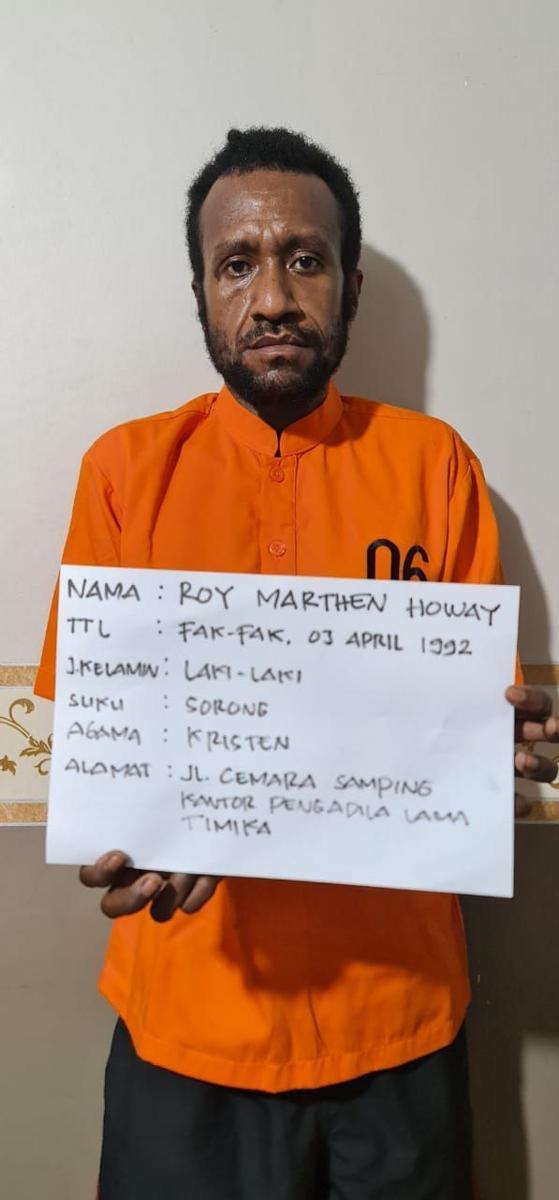 06
NAMA : ROY MARTHEN HOWAY
TTL : FAK-FAK. 03 APRIL 1992
J.KELAMIN : LAKI-LAKI
SUKU : SORONG
AGAMA : KRISTEN
ALAMAT : JL. CEMARA SAMPING
KANTOR PENGADILA LAMA
TIMIKA